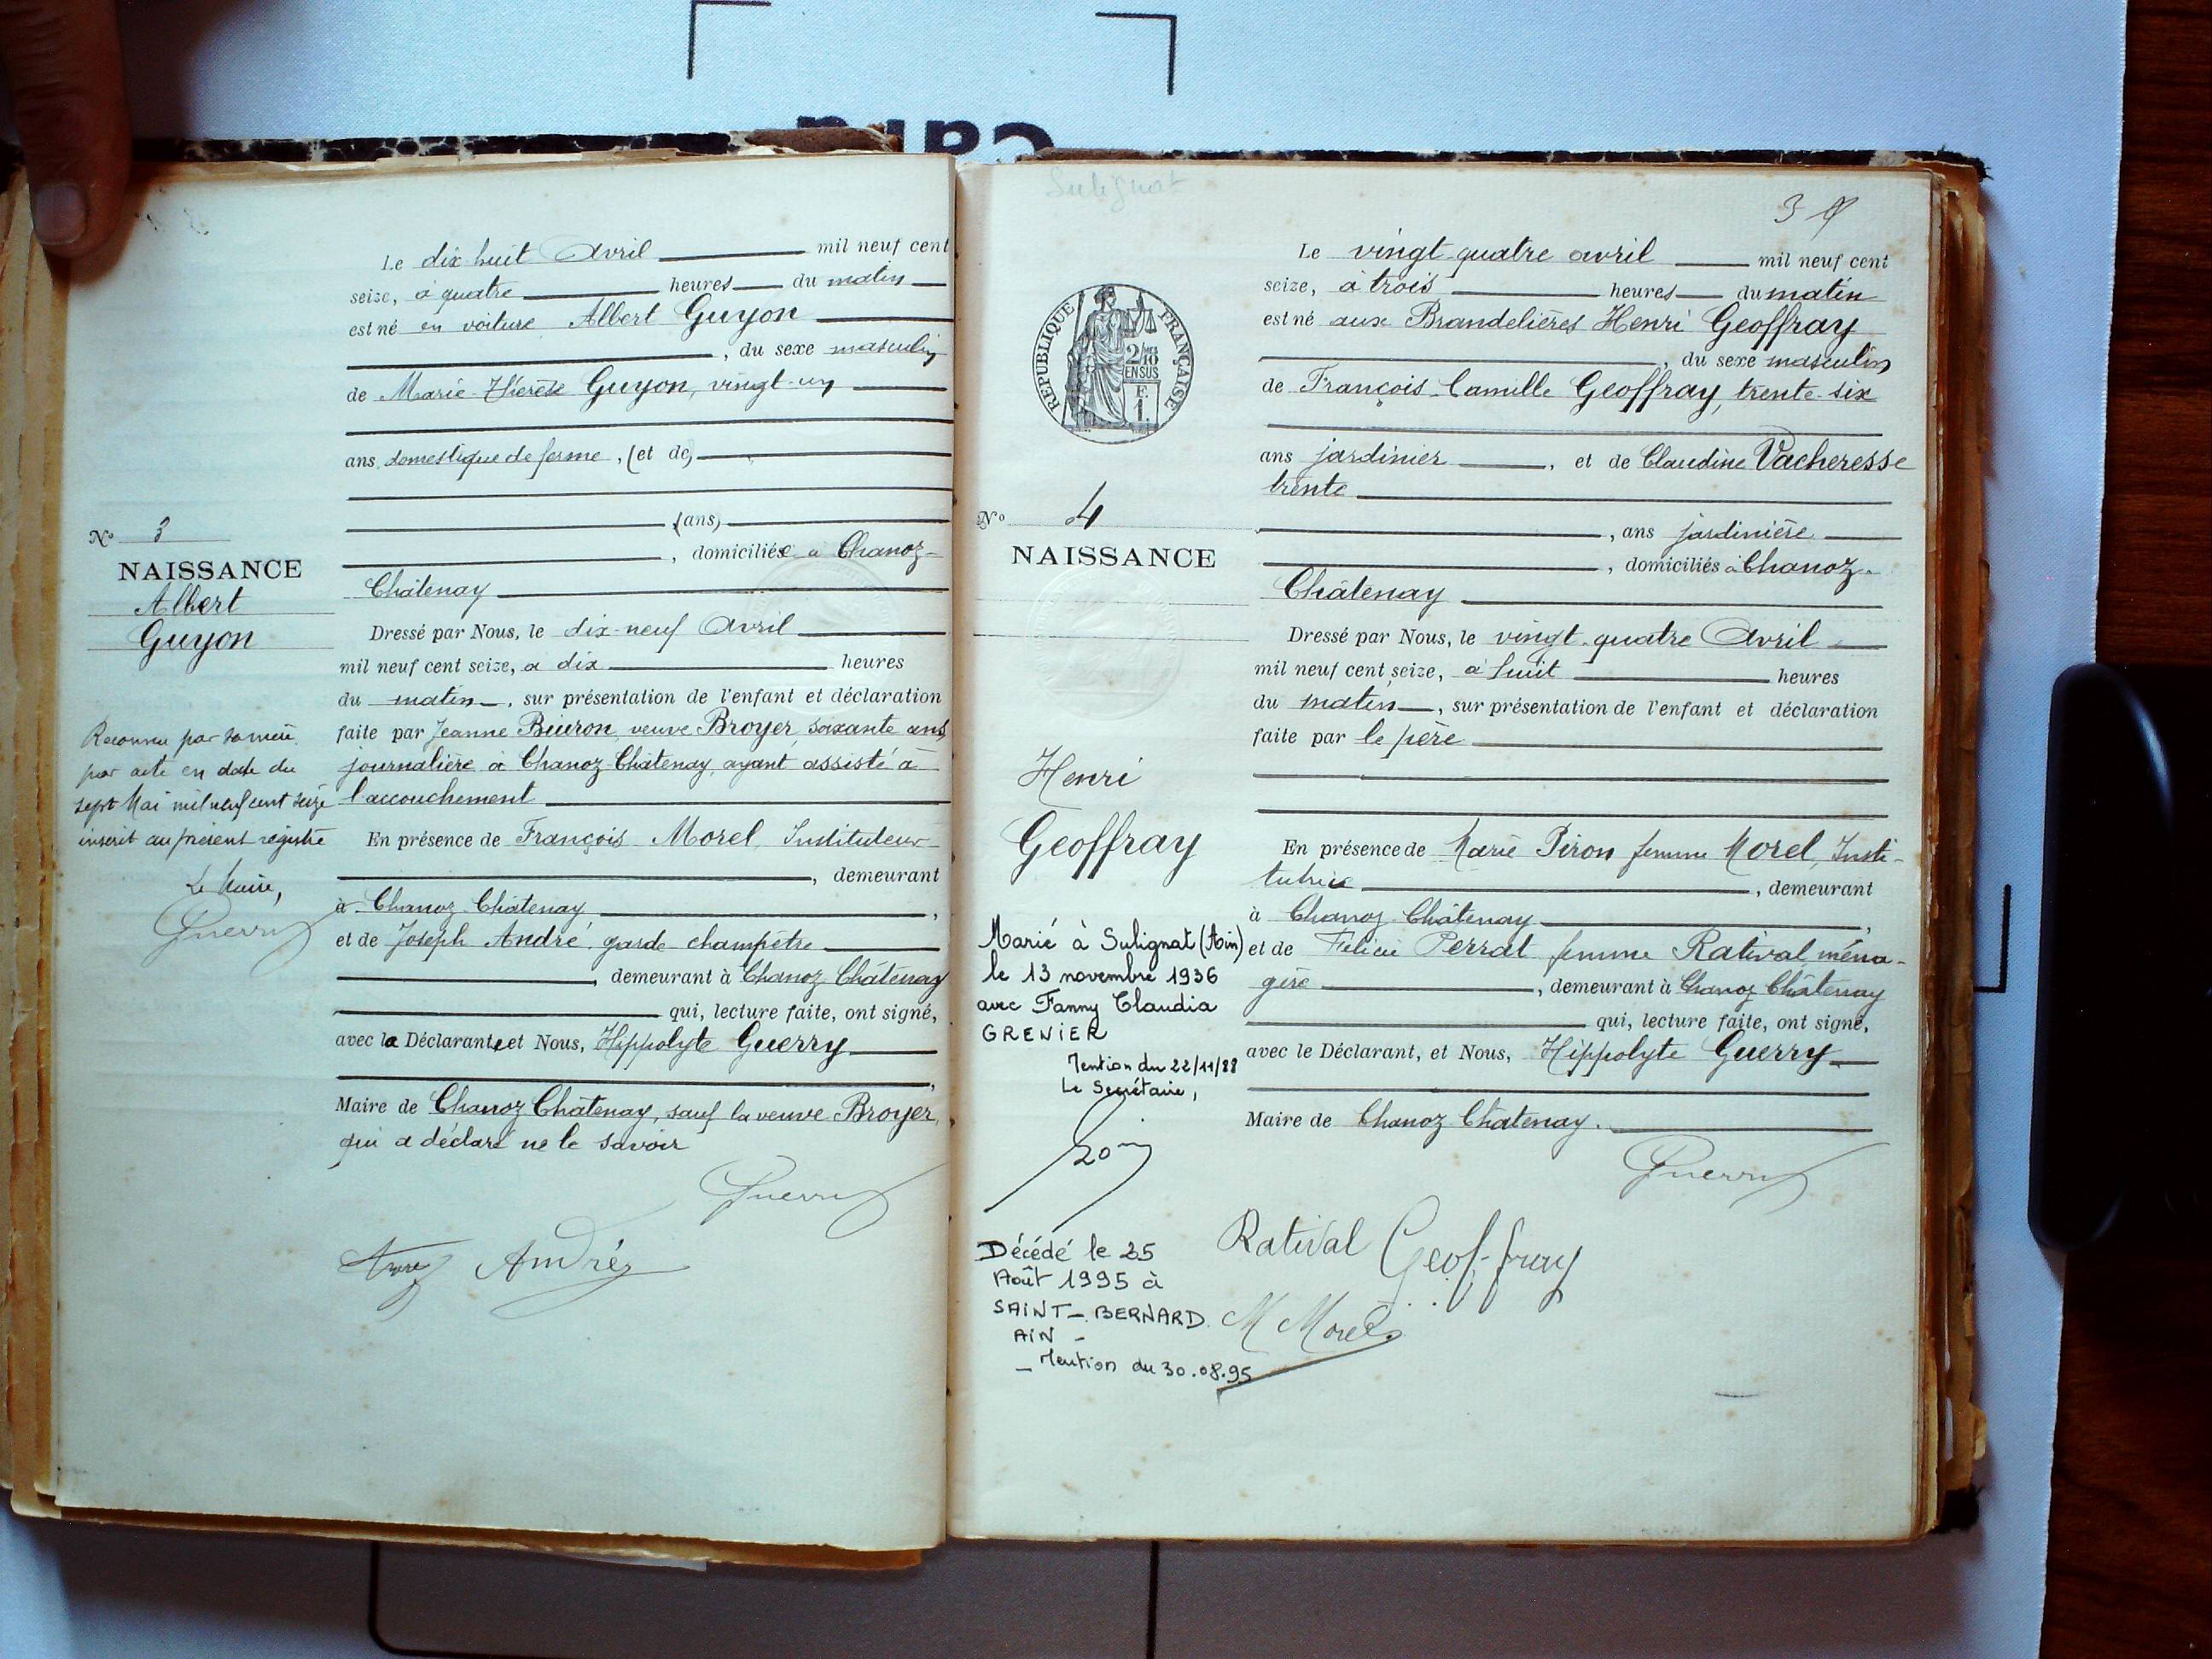 Le dix-huit Avril mil neuf cent
seize, à quatre heures du matin
est né en voiture Albert Guyon
, du sexe masculin
de Marie-Thérèse Guyon, vingt-un
ans, domestique de ferme, (et de)
(ans)
, domiciliée à Chanoz-
Châtenay
Dressé par Nous, le dix-neuf Avril
mil neuf cent seize, à dix heures
du matin, sur présentation de l'enfant et déclaration
faite par Jeanne veuve Broyer, soixante ans,
journalière à Chanoz-Châtenay, ayant assisté à
l'accouchement
En présence de François Morel, Instituteur
, demeurant
à Chanoz-Châtenay,
et de Joseph André, garde-champêtre
, demeurant à Chanoz-Châtenay
qui, lecture faite, ont signé,
avec la Déclarante, et Nous, Hippolyte Guerry
,
Maire de Chanoz-Châtenay, sauf la veuve Broyer,
qui a déclaré ne le savoir
Guerry
André
No 3
NAISSANCE
Albert
Guyon
Reconnu par sa mère
par acte en date du
sept Mai mil neuf cent seize
inscrit au présent registre
Le Maire,
Guerry
Sulignat
3
Le vingt-quatre avril mil neuf cent
seize, à trois heures du matin
est né aux Brandelières Henri Geoffray
, du sexe masculin
de François-Camille Geoffray, trente-six
ans jardinier, et de Claudine Vacheresse
trente
, ans jardinière
, domiciliés à Chanoz-
Châtenay
Dressé par Nous, le vingt-quatre Avril
mil neuf cent seize, à huit heures
du matin, sur présentation de l'enfant et déclaration
faite par le père
En présence de Marie Piron femme Morel, Insti-
tutrice, demeurant
à Chanoz-Châtenay,
et de Félicie Perrat femme Ratival, ména-
gère, demeurant à Chanoz-Châtenay
qui, lecture faite, ont signé,
avec le Déclarant, et Nous, Hippolyte Guerry
Maire de Chanoz-Châtenay.
Guerry
Ratival Geoffray
M Morel
RÉPUBLIQUE FRANÇAISE
2/10
EN SUS
F.
1.
No 4
NAISSANCE
Henri
Geoffray
Marié à Sulignat (Ain)
le 13 novembre 1936
avec Fanny Claudia
GRENIER
Mention du 22/11/88
Le Secrétaire,
Décédé le 25
Août 1995 à
SAINT-BERNARD
AIN -
_ Mention du 30.08.95